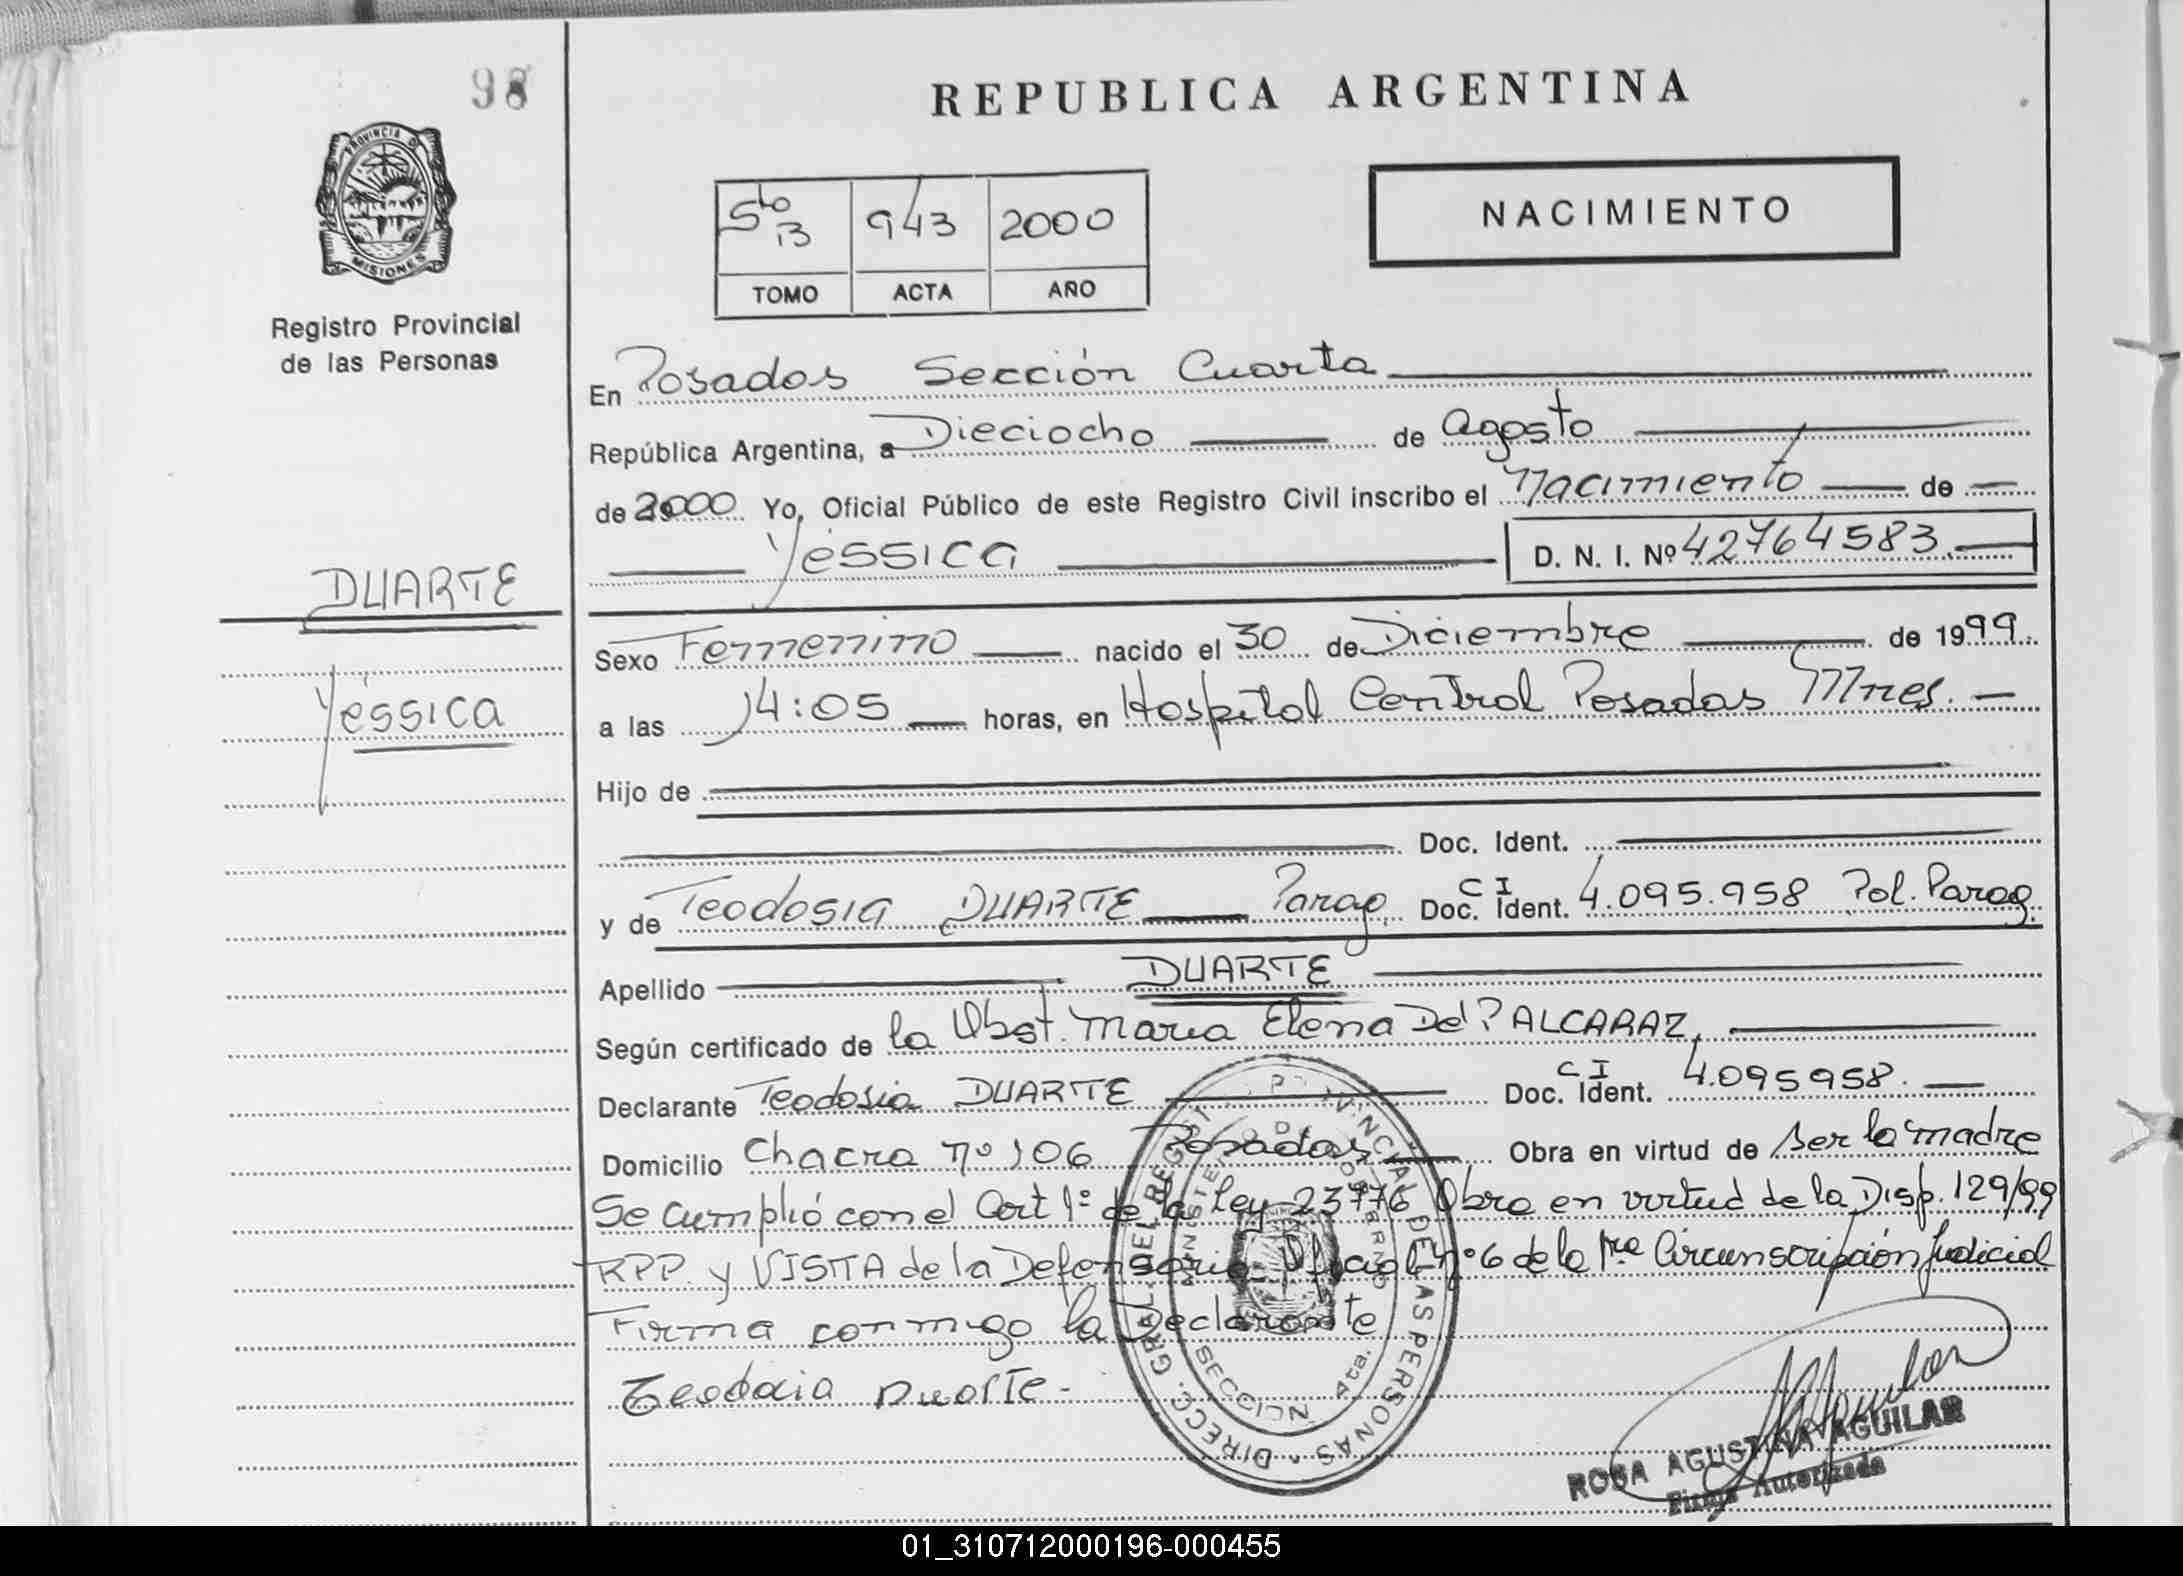 98
REPUBLICA ARGENTINA
PROVINCIA DE
MISIONES
Registro Provincial
de las Personas
Sto B 943 2000
TOMO ACTA AÑO
NACIMIENTO
En Posadas Sección Cuarta
República Argentina, a Dieciocho de Agosto
de 2000 Yo, Oficial Público de este Registro Civil inscribo el Nacimiento de
Yéssica D. N. I. Nº 42764583
DUARTE
Yéssica
Sexo Femenino nacido el 30 de Diciembre de 1999
a las 14:05 horas, en Hospital Central Posadas Mnes.
Hijo de
Doc. Ident.
y de Teodosia DUARTE Parag. Doc. Ident. CI 4.095.958 Pol. Parag.
Apellido DUARTE
Según certificado de la Obst. Maria Elena De ALCARAZ
Declarante Teodosia DUARTE Doc. Ident. CI 4.095958.
Domicilio Chacra nº 106 Posadas Obra en virtud de ser la madre
Se cumplió con el Art 1º de la Ley 23776 Obra en virtud de la Disp. 129/99
RPP. y VISTA de la Defensoria Oficial nº 6 de la 1ra Circunscripción Judicial
Firma conmigo la Declarante
Teodocia Duarte
DIRECC. GRAL. DEL REGIST. PROVINCIAL DE LAS PERSONAS
MINISTERIO DE GOBIERNO
SECCION 4ta.
ROSA AGUSTINA AGUILAR
Firma Autorizada
01_310712000196-000455